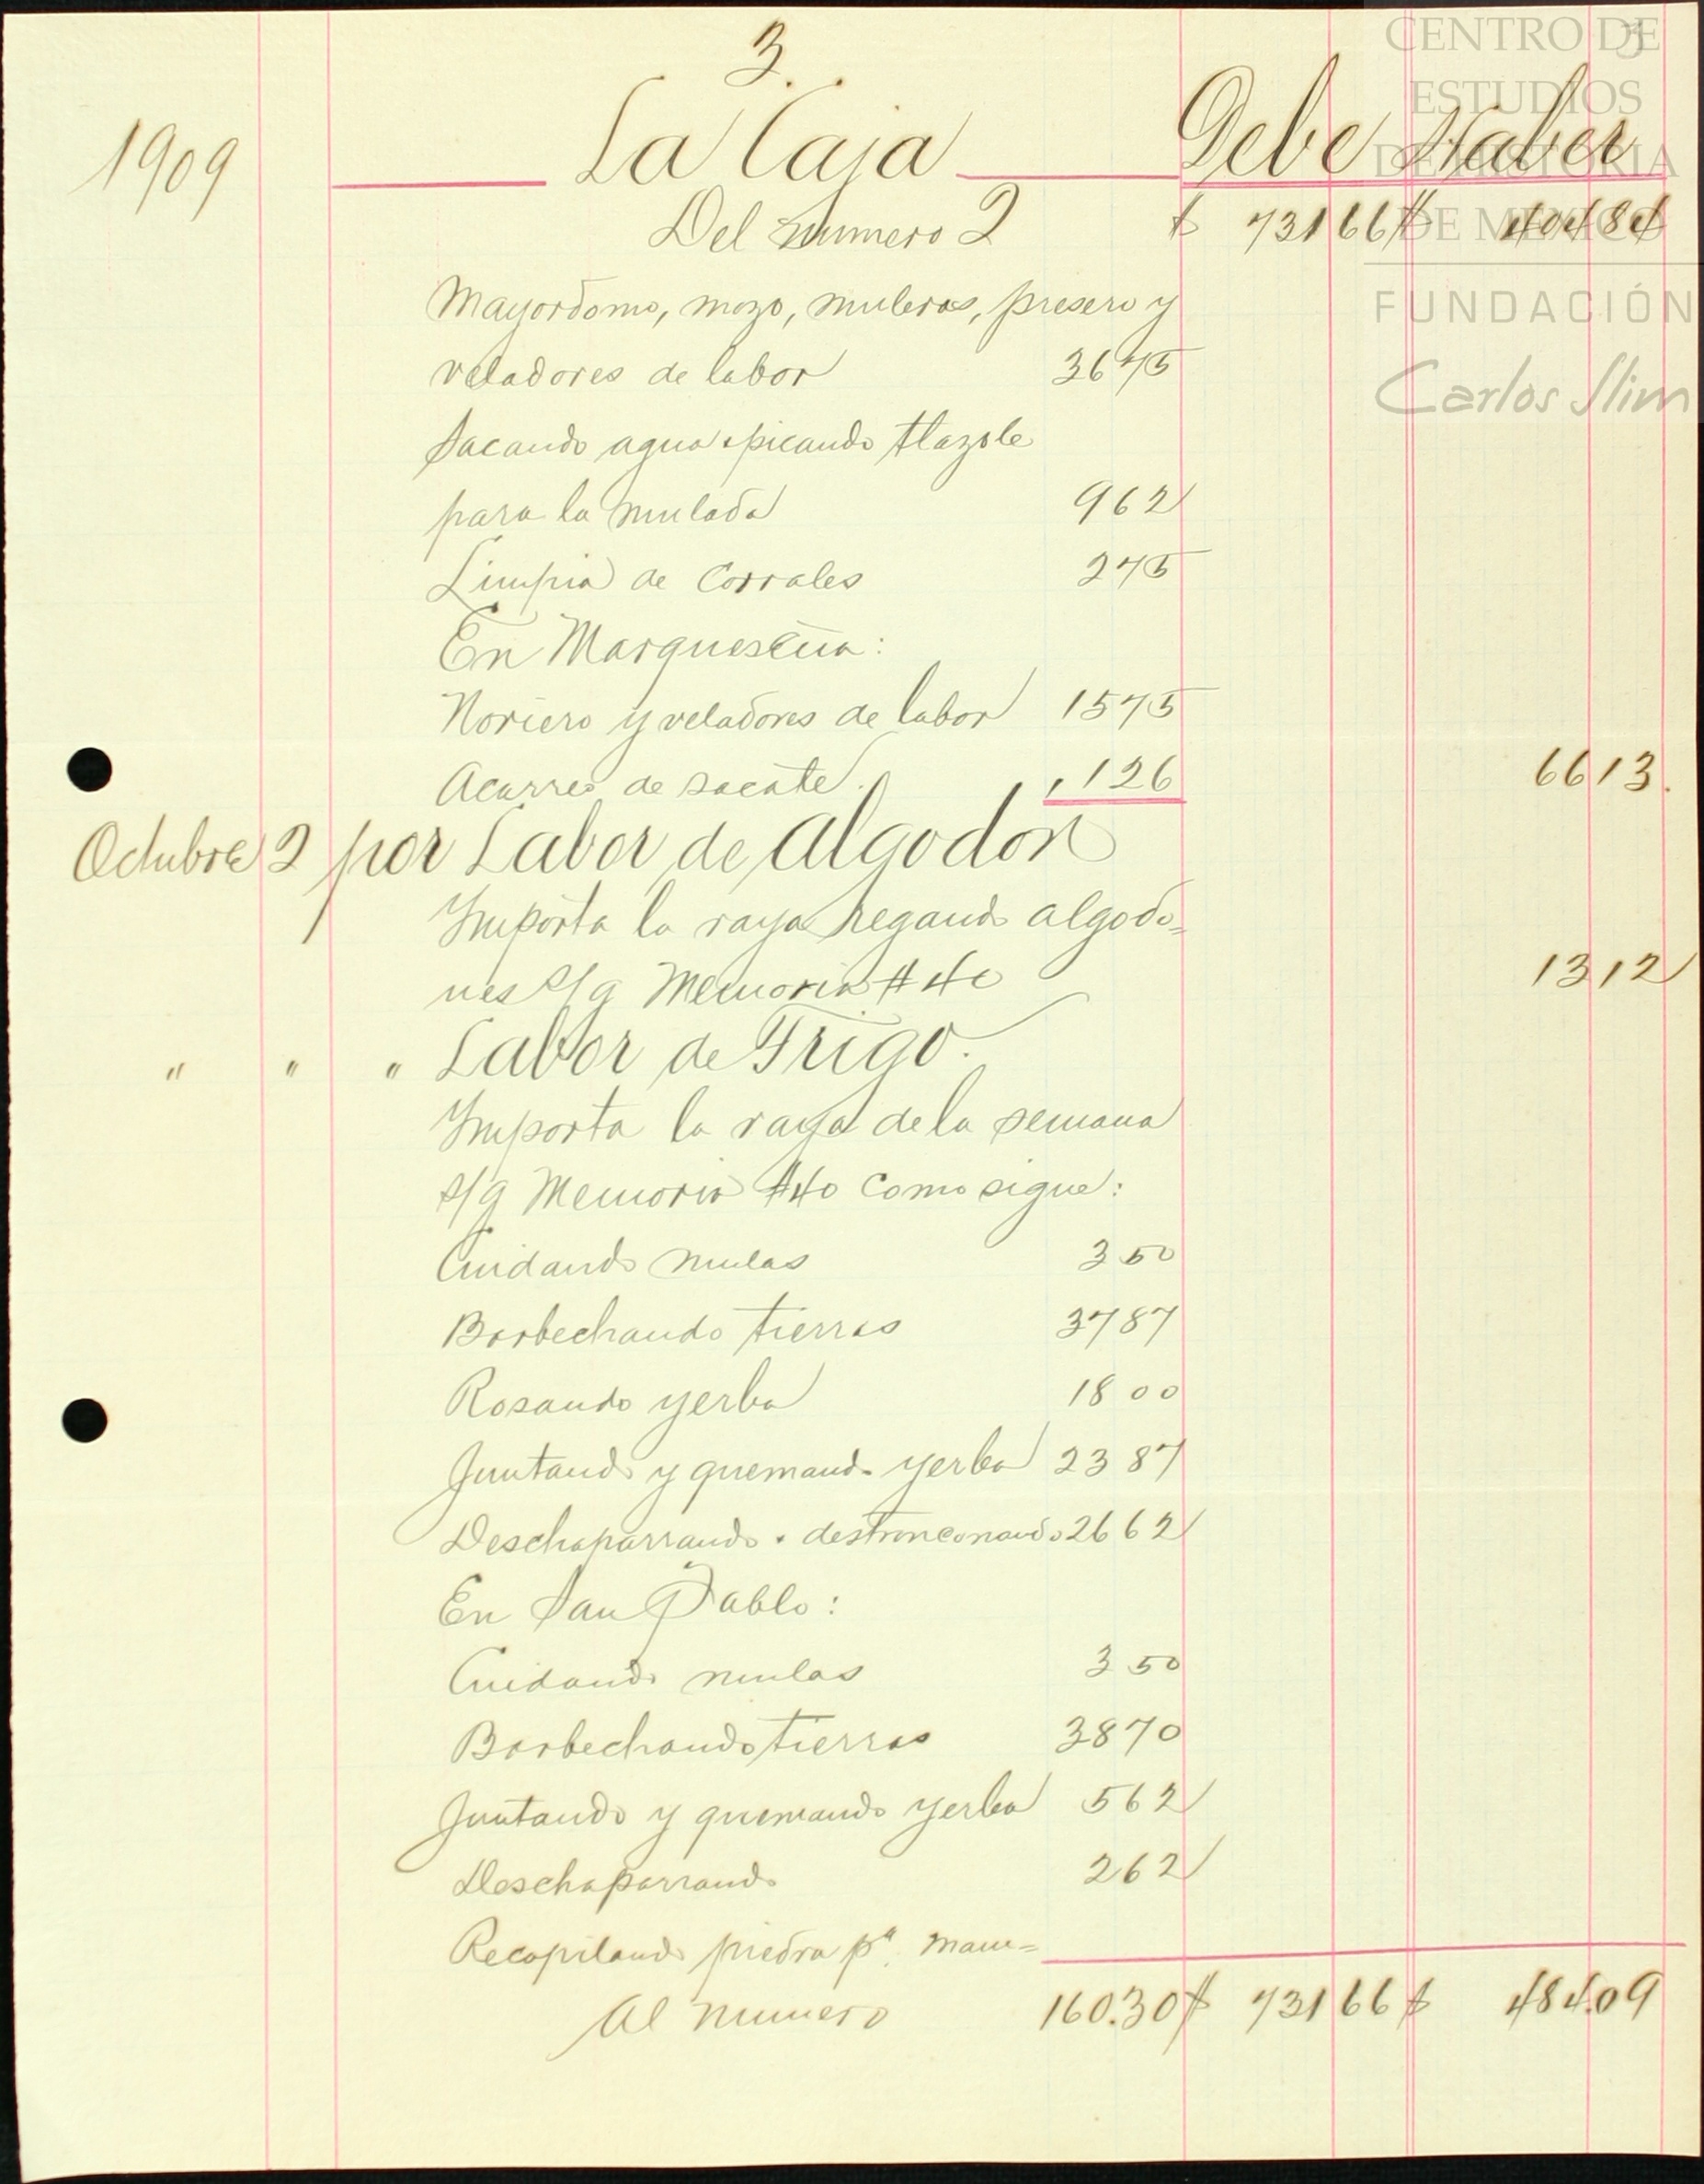 3.
CENTRO DE
ESTUDIOS
DE HISTORIA
DE MEXICO
FUNDACIÓN
Carlos Slim
3
1909 La Caja Debe Haber
Del numero 2 $ 731 66 $ 404 84
Mayordomo, mozo, muleros, presero y
veladores de labor 36 75
Sacando agua picando tlazole
para la mulada 9 62
Limpia de Corrales 2 75
En Marqueseña:
Noriero y veladores de labor 15 75
Acarreo de sacate. , 1 26 66 13.
Octubre 2 por Labor de Algodon
Importa la raya regando algodo=
nes s/g Memoria # 40 13 12
" " " Labor de Trigo.
Importa la raya de la semana
s/g Memoria #40 como sigue:
Cuidando mulas 3 50
Barbechando tierras 37 87
Rosando yerba 18 00
Juntando y quemando yerba 23 87
Deschaparrando . destronconando 26 62
En San Pablo:
Cuidando mulas 3 50
Barbechando tierras 38 70
Juntando y quemando yerba 5 62
Deschaparrando 2 62
Recopilando piedra pa. mam=
Al numero 160.30 $ 731 66 $ 484.09